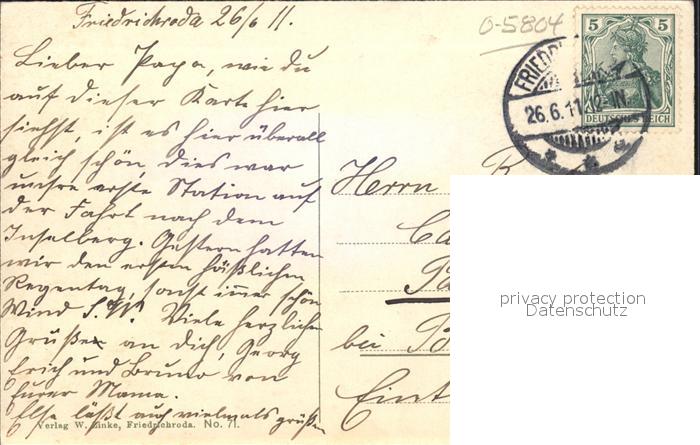 Friedrichroda 26/6 11.
0-5804
Lieber Papa, wie du
auf dieser Karte hier
siehst, ist es hier überall
gleich schön, dies war
unsre erste Station auf
der Fahrt nach dem
Inselberg. Gestern hatten
wir den ersten häßlichen
Regentag, sonst immer schön
Wind S.W. Viele herzlichen
Grüße an dich, Georg
Erich und Bruno von
Eurer Mama.
Else läßt auch vielmals grüßen
Verlag W. Linke, Friedrichroda. No. 71.
5 5
DEUTSCHES REICH
FRIEDR
26.6.11. 12-1N.
Herrn
bei
privacy protection
Datenschutz